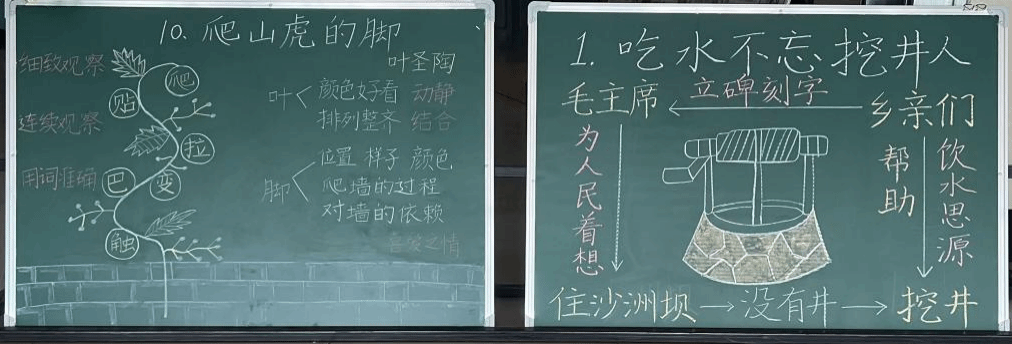 10. 爬山虎的脚
叶圣陶
细致观察
连续观察
用词准确
爬
贴
拉
巴
变
触
叶
颜色好看 动静
排列整齐 结合
脚
位置 样子 颜色
爬墙的过程
对墙的依赖
喜爱之情
1. 吃水不忘挖井人
毛主席 立碑刻字 乡亲们
为人民着想
帮助
饮水思源
住沙洲坝 → 没有井 → 挖井